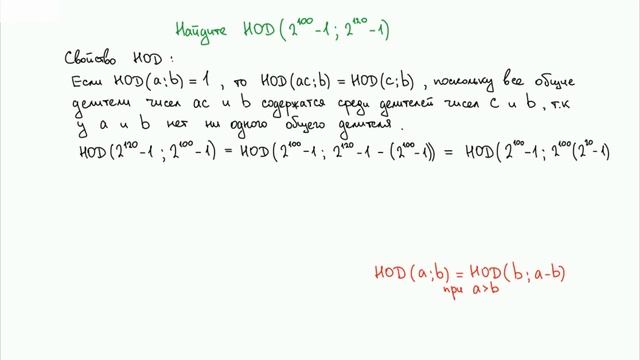 Найдите НОD(2¹⁰⁰-1; 2¹²⁰-1)
Свойство НОD:
Если НОD(a;b)=1, то НОD(ac;b)=НОD(c;b), поскольку все общие
делители чисел ac и b содержатся среди делителей чисел c и b, т.к
у a и b нет ни одного общего делителя.
НОD(2¹²⁰-1; 2¹⁰⁰-1) = НОD(2¹⁰⁰-1; 2¹²⁰-1-(2¹⁰⁰-1)) = НОD(2¹⁰⁰-1; 2¹⁰⁰(2²⁰-1)
НОD(a;b)=НОD(b;a-b)
при a>b